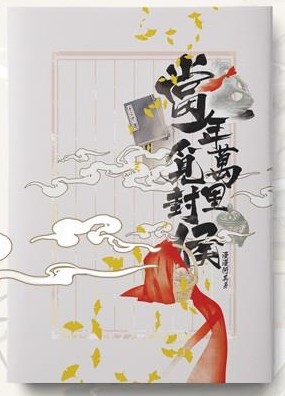 當年萬里覓封侯
漫漫何其多